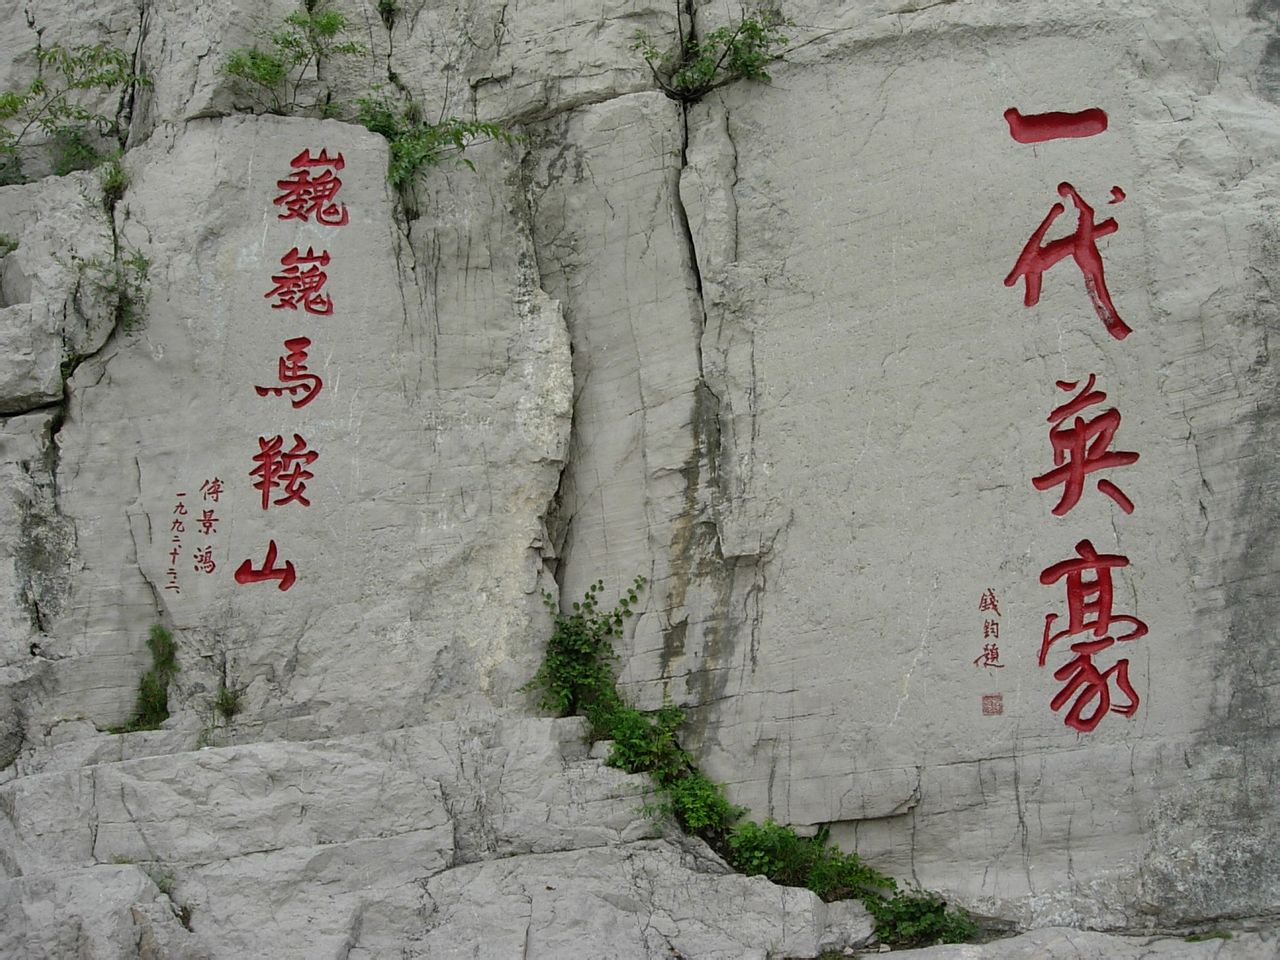 一代英豪
錢鈞題
巍巍馬鞍山
傅景鴻
一九九二、十二、二、